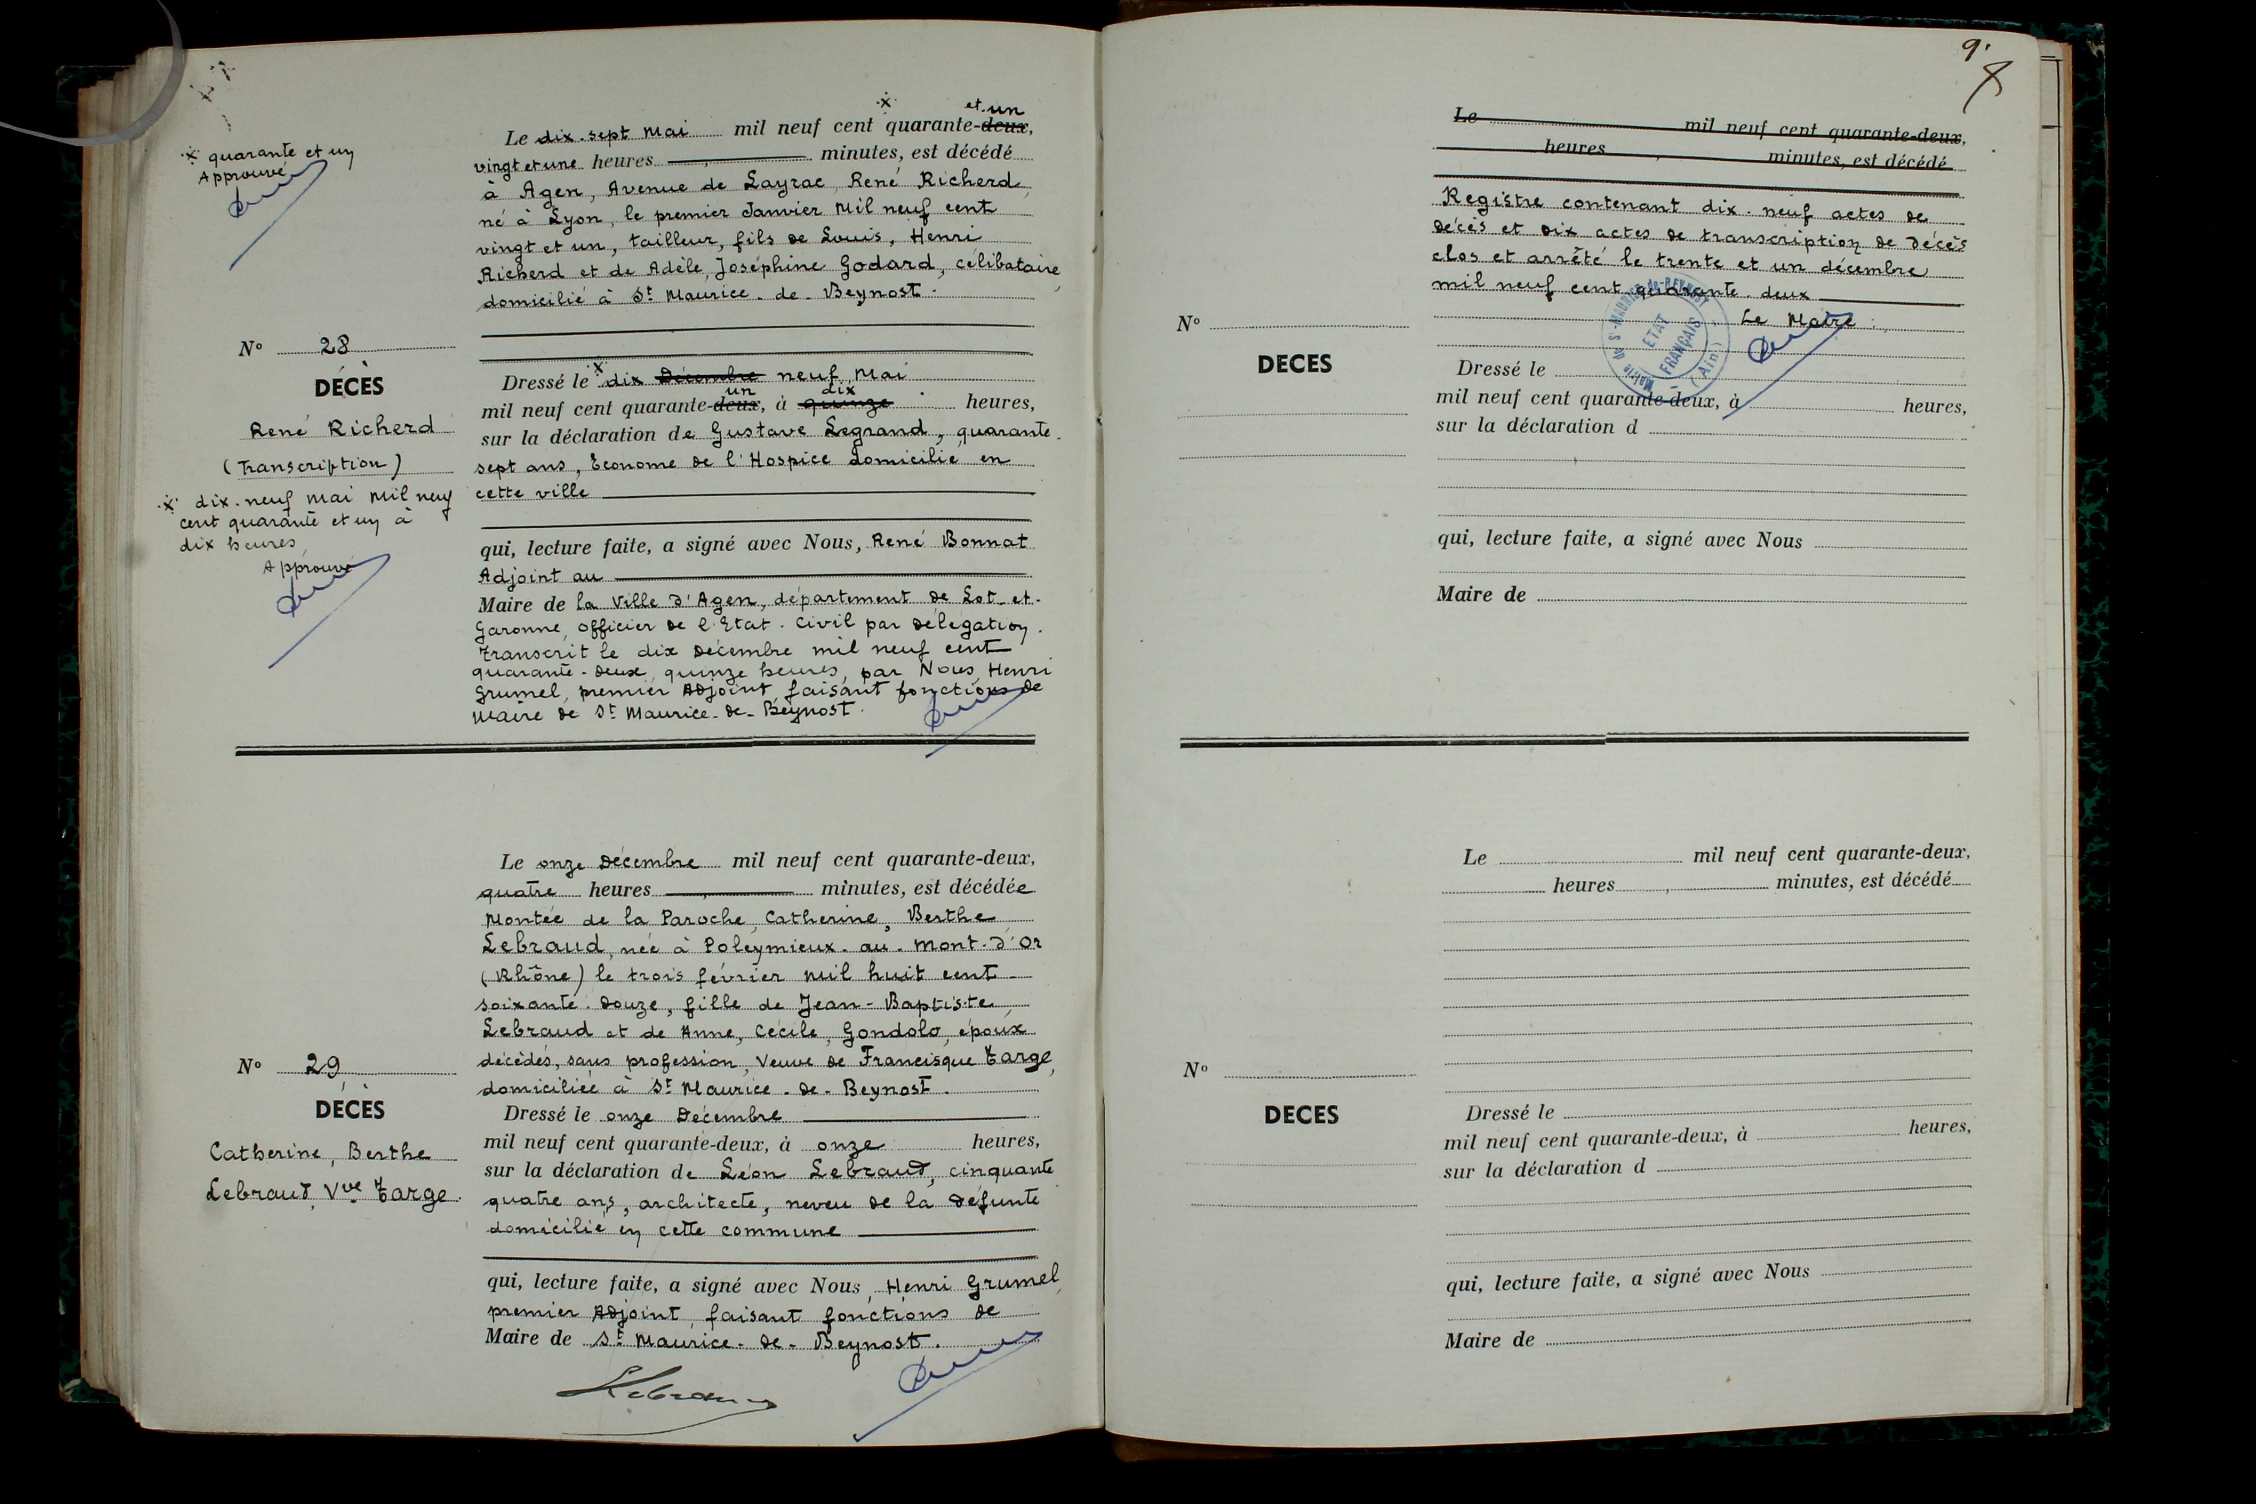 × quarante et un
Approuvé
Le dix-sept Mai mil neuf cent × quarante-deux, et un
vingt et une heures minutes, est décédé
à Agen, Avenue de Layrac, René Richerd,
né à Lyon, le premier Janvier Mil neuf cent
vingt et un, tailleur, fils de Louis, Henri
Richerd et de Adèle, Joséphine Godard, célibataire,
domicilié à St Maurice-de-Beynost.
No 28
DÉCÈS
René Richerd
(Transcription)
× dix-neuf Mai Mil neuf
cent quarante et un à
dix heures
Approuvé
Dressé le × dix Décembre neuf Mai
mil neuf cent quarante-deux, un à quinze dix heures,
sur la déclaration de Gustave Legrand, quarante-
sept ans, Econome de l'Hospice domicilié en
cette ville
qui, lecture faite, a signé avec Nous, René Bonnat
Adjoint au
Maire de la Ville d'Agen, département de Lot-et-
Garonne, officier de l'Etat-Civil par délégation.
Transcrit le dix Décembre mil neuf cent
quarante-deux, quinze heures, par Nous Henri
Grumel, premier Adjoint, faisant fonctions de
Maire de St Maurice-de-Beynost.
Le onze Décembre mil neuf cent quarante-deux,
quatre heures minutes, est décédée
Montée de la Paroche, Catherine, Berthe
Lebraud, née à Poleymieux-au-Mont-d'Or
(Rhône) le trois février mil huit cent
soixante-douze, fille de Jean-Baptiste
Lebraud et de Anne, Cécile, Gondolo, époux
décédés, sans profession, Veuve de Francisque Targe,
domiciliée à St Maurice-de-Beynost.
No 29
DÉCÈS
Catherine, Berthe
Lebraud, Vve Targe.
Dressé le onze Décembre
mil neuf cent quarante-deux, à onze heures,
sur la déclaration de Léon Lebraud, cinquante
quatre ans, architecte, neveu de la défunte
domicilié en cette commune
qui, lecture faite, a signé avec Nous, Henri Grumel,
premier Adjoint, faisant fonctions de
Maire de St Maurice-de-Beynost.
Lebraud
9.
Le mil neuf cent quarante-deux,
heures, minutes, est décédé
Registre contenant dix-neuf actes de
décès et dix actes de transcription de décès
clos et arrêté le trente et un décembre
mil neuf cent quarante-deux
Le Maire :
Mairie de St-MAURICE-de-BEYNOST
ETAT
FRANÇAIS
(Ain)
No
DECES
Dressé le
mil neuf cent quarante-deux, à heures,
sur la déclaration d
qui, lecture faite, a signé avec Nous
Maire de
Le mil neuf cent quarante-deux,
heures, minutes, est décédé
No
DECES
Dressé le
mil neuf cent quarante-deux, à heures,
sur la déclaration d
qui, lecture faite, a signé avec Nous
Maire de